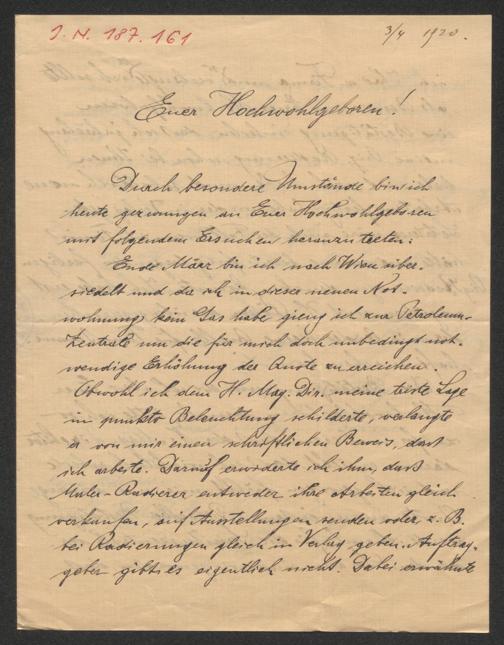 J. N. 187.161
3/4 1920.
Euer Hochwohlgeboren!
Durch besondere Umstände bin ich
heute gezwungen an Euer Hochwohlgeboren
mit folgendem Ersuchen heranzutreten:
Ende März bin ich nach Wien über-
siedelt und da ich in dieser neuen Not-
wohnung kein Gas habe gieng ich zur Petroleum-
Zentrale um die für mich doch unbedingt not-
wendige Erhöhung der Quote zu erreichen.
Obwohl ich dem H. Mag. Dir. meine triste Lage
in punkto Beleuchtung schilderte, verlangte
er von mir einen schriftlichen Beweis, dass
ich arbeite. Darauf erwiderte ich ihm, dass
Maler-Radierer entweder ihre Arbeiten gleich
verkaufen, auf Ausstellungen senden oder z. B.
bei Radierungen gleich in Verlag geben. Auftrag-
geber gibt es eigentlich nicht. Dabei erwähnte